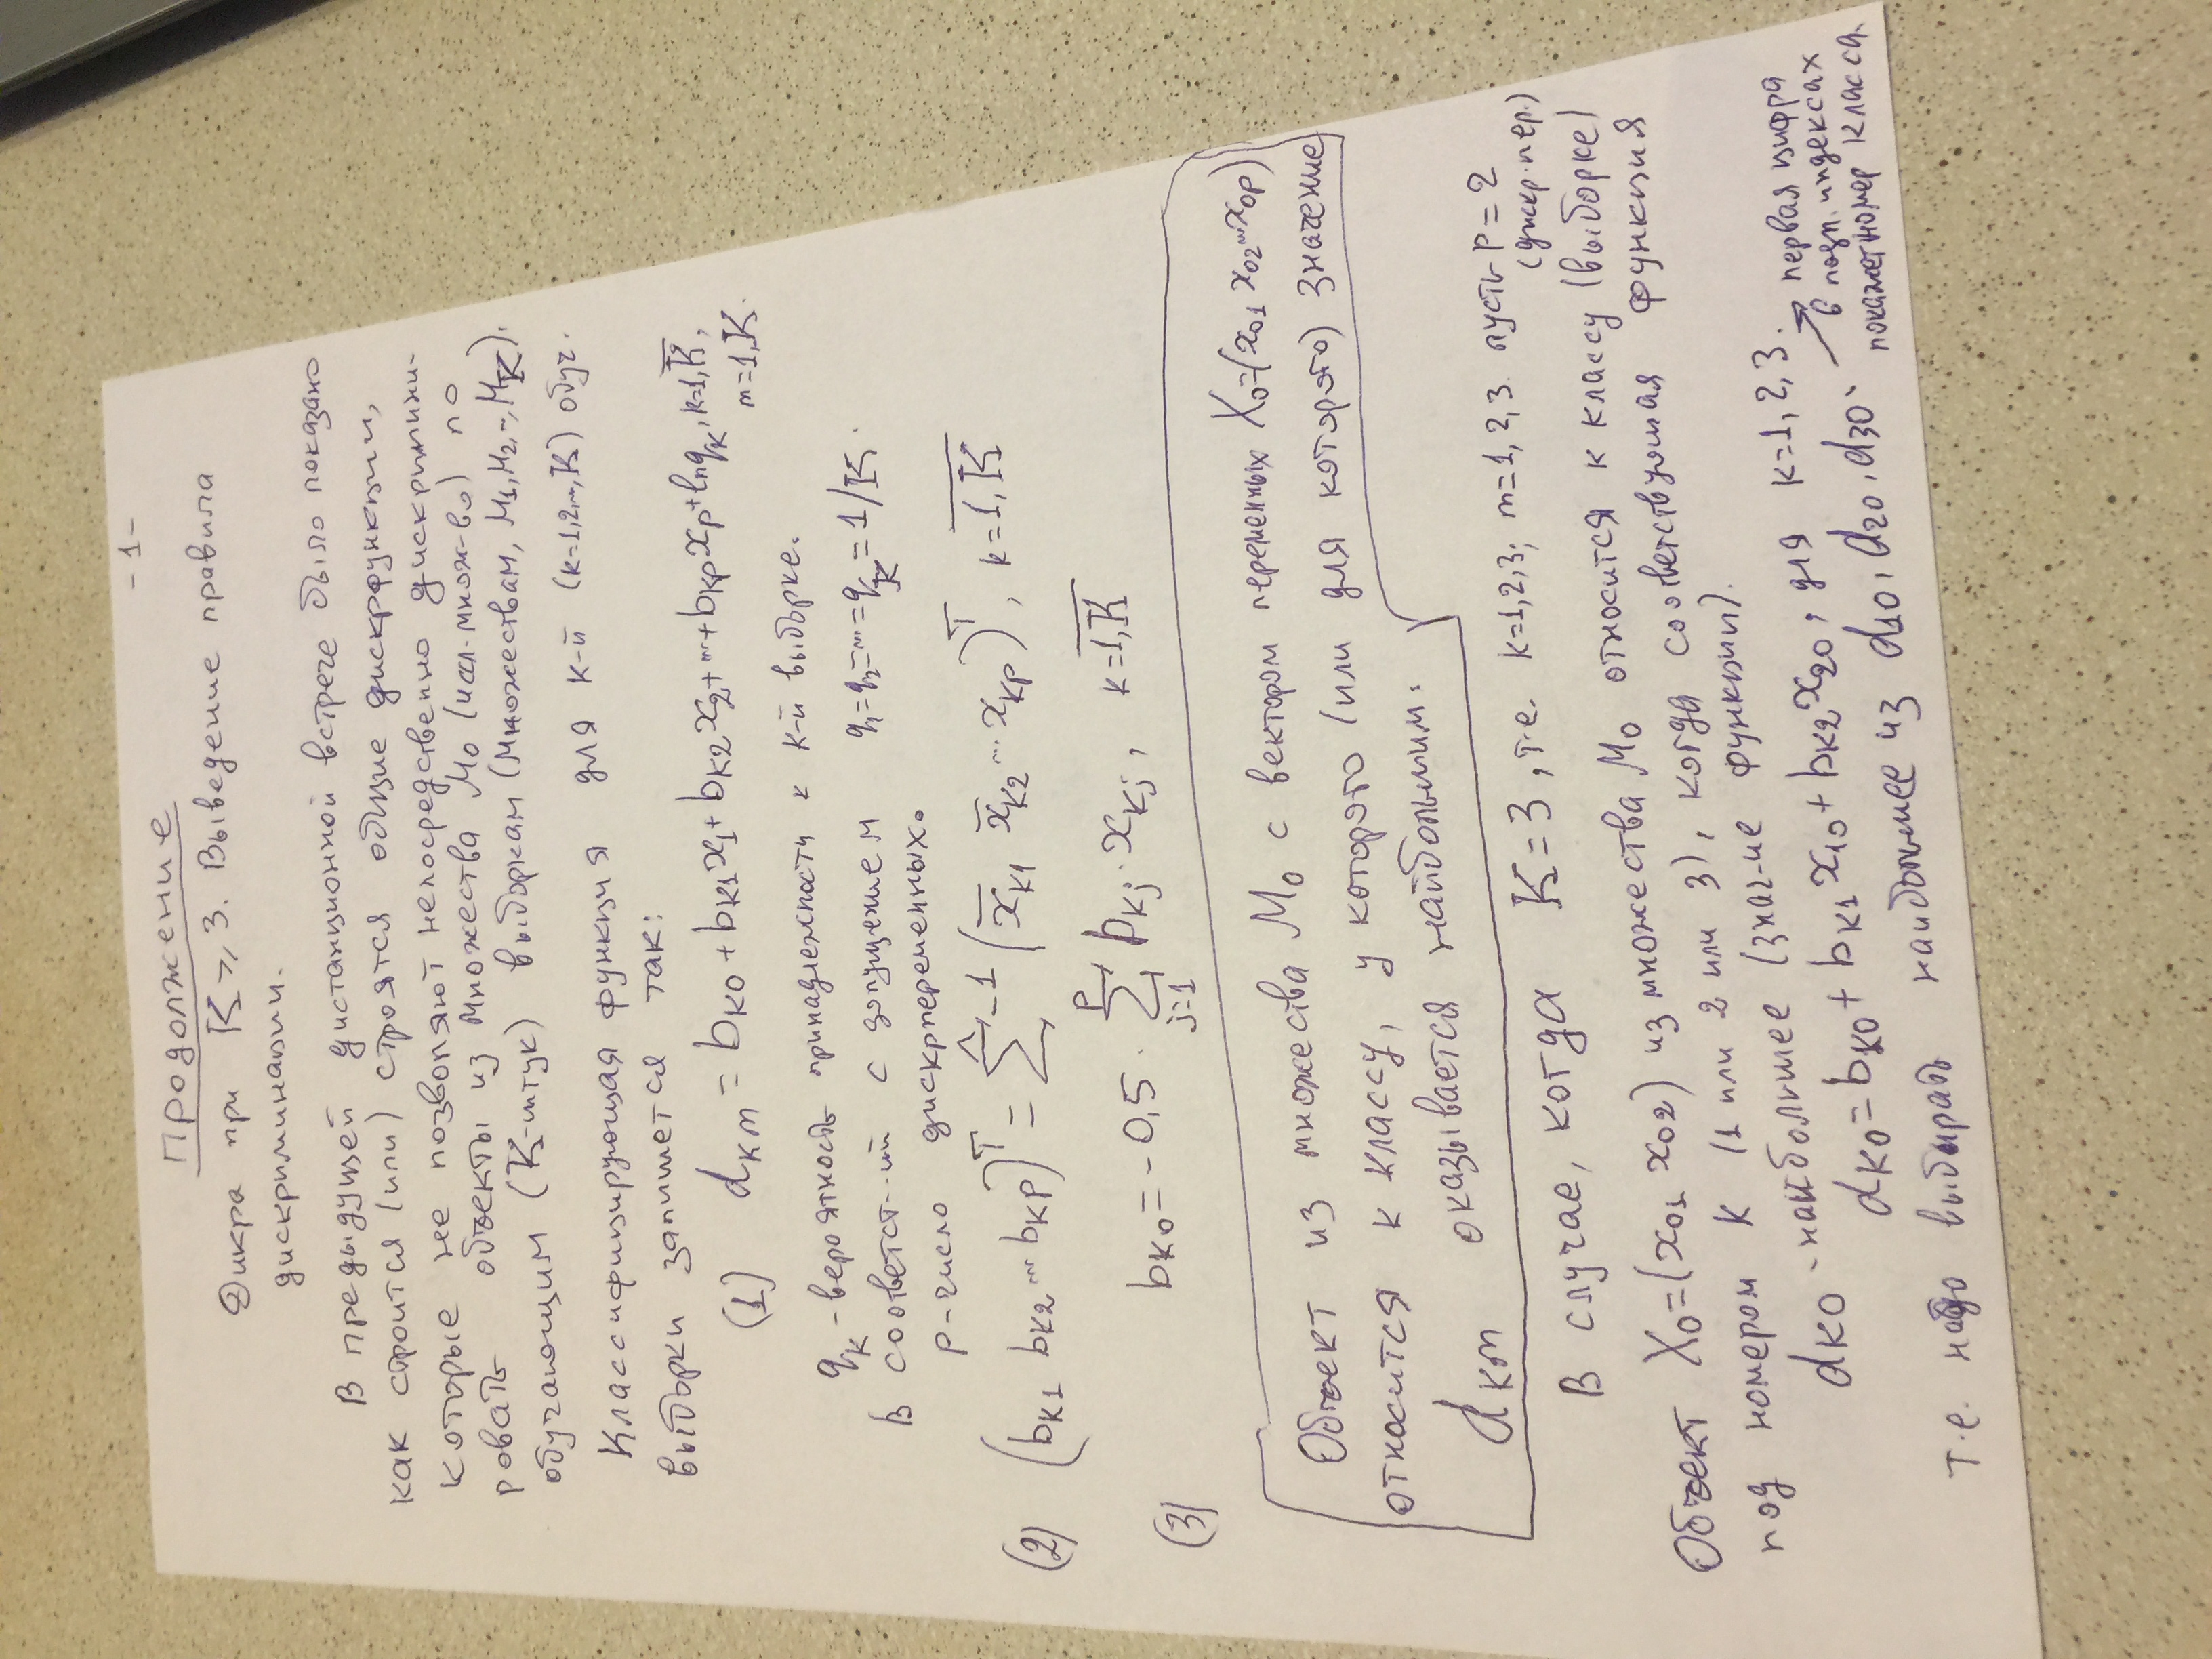 - 1 -
Продолжение
Дикра при K ≥ 3. Выведение правила
дискриминации.
В предыдущей дистанционной встрече было показано
как строится (или) строятся общие дискрфункции,
которые не позволяют непосредственно дискримини-
ровать объекты из множества M₀ (иссл. множ-во) по
обучающим (K-штук) выборкам (множествам, M₁, M₂, ..., M_K).
Классифицирующая функция для k-й (k=1,2,...,K) обуч.
выборки запишется так:
(1) d_km = b_k0 + b_k1 x₁ + b_k2 x₂ + ... + b_kp x_p + ln q_k, k=1,K̅,
m=1,K.
q_k - вероятность принадлежности к k-й выборке.
В соответст-ии с допущением q₁=q₂=...=q_K=1/K.
p - число дискрпеременных.
(2) (b_k1 b_k2 ... b_kp)ᵀ = Σ̂⁻¹ (x̅_k1 x̅_k2 ... x_kp)ᵀ, k=1,K
(3) b_k0 = -0,5 · Σ_{j=1}^{p} b_kj · x_kj, k=1,K
Объект из множества M₀ с вектором переменных X₀=(x₀₁ x₀₂ ... x₀p)
относится к классу, у которого (или для которого) значение
d_km оказывается наибольшим.
В случае, когда K=3, т.е. k=1,2,3; m=1,2,3. пусть p=2
(дискр. пер.)
Объект X₀=(x₀₁ x₀₂) из множества M₀ относится к классу (выборке)
под номером k (1 или 2 или 3), когда соответствующая функция
d_k0 - наибольшее (знач-ие функции).
d_k0 = b_k0 + b_k1 x₁₀ + b_k2 x₂₀, для k=1,2,3.
т.е. надо выбирать наибольшее из d₁₀, d₂₀, d₃₀.
→ первая цифра
в подп. индексах
покажет номер класса.